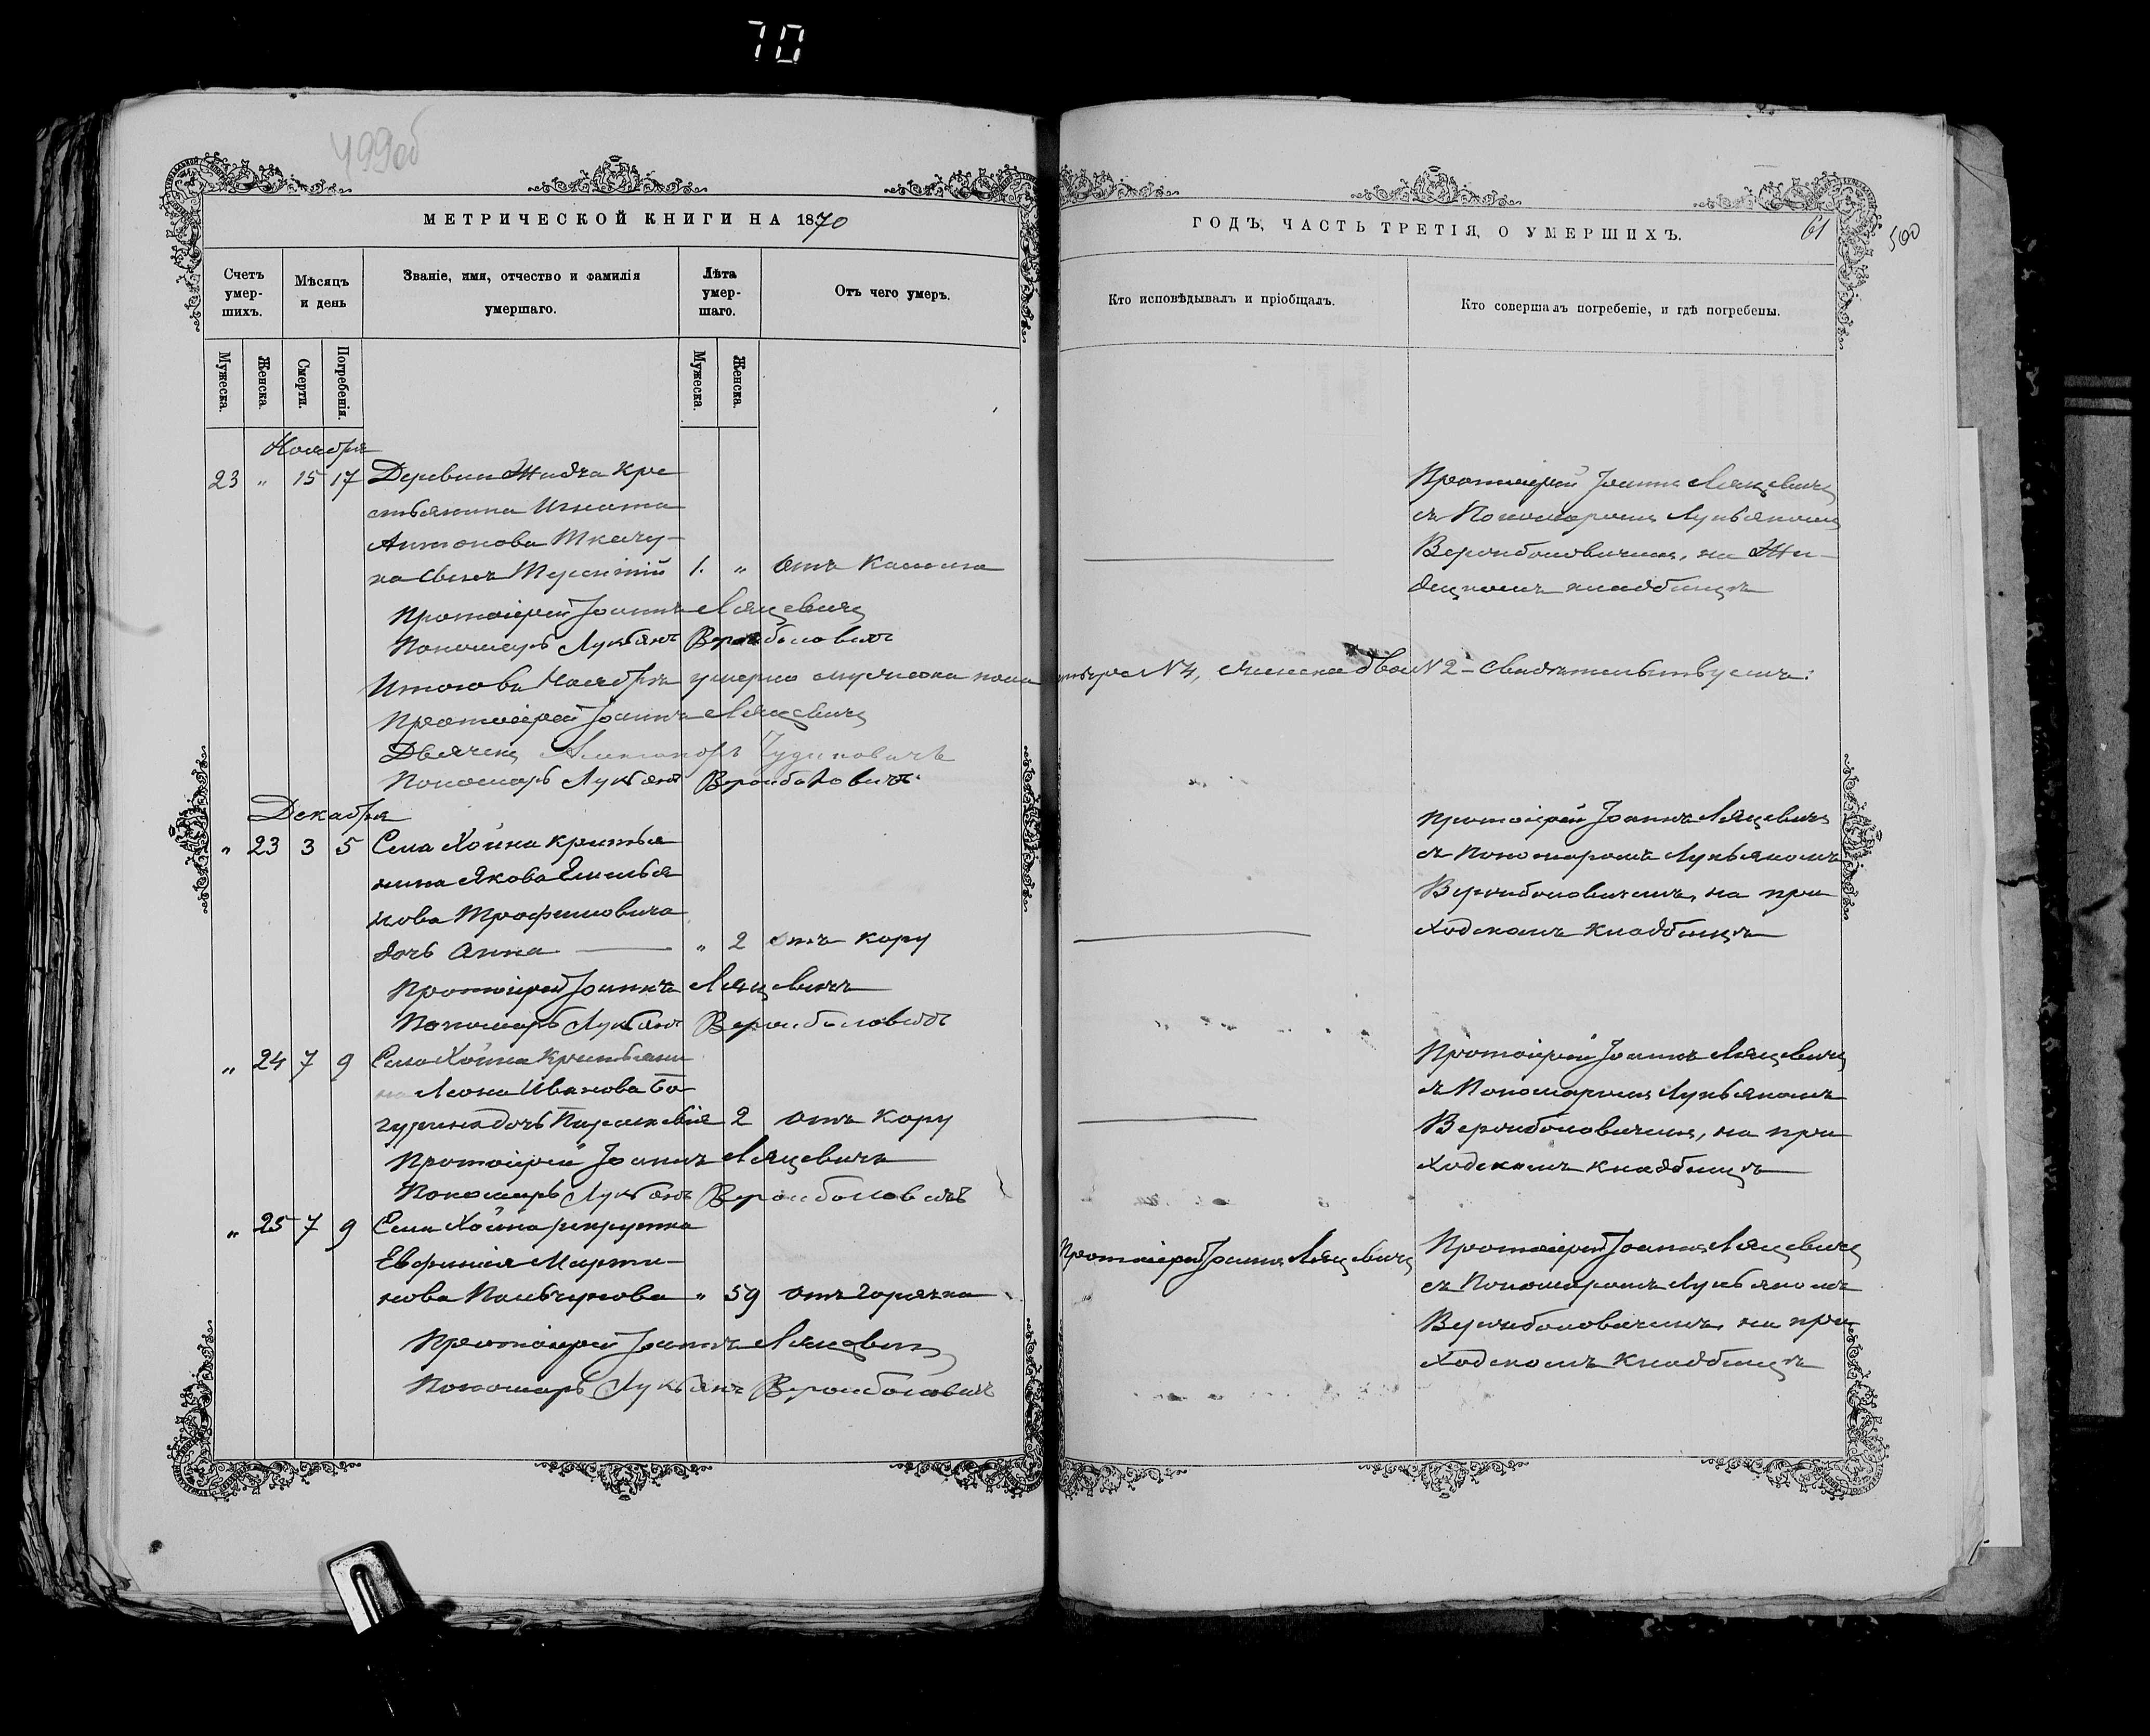 70
499об
МЕТРИЧЕСКОЙ КНИГИ НА 1870
Счетъ умер-шихъ.
Мѣсяцъ и день
Званіе, имя, отчество и фамилія умершаго.
Лѣта умер-шаго.
Отъ чего умеръ.
Мужеска.
Женска.
Смерти.
Погребенія.
Мужеска.
Женска.
Ноября
23 " 15 17 Деревни Жидча кре
стьянина Игната
Антонова Ткачу-
ка сынъ 1. " отъ кашля
Протоіерей Іоаннъ Ляцевичъ
Пономарь Лукьянъ Верембаловичъ
Итого въ Ноябрѣ умерло мужеска пола
Протоіерей Іоаннъ Ляцевичъ
Дьячекъ Александръ
Пономарь Лукьянъ Верембаловичъ
Декабря
" 23 3 5 Села Хойна крестья
нина Якова Емелья
нова Трофимовича
дочь Анна " 2 отъ кору
Протоіерей Іоаннъ Ляцевичъ
Пономарь Лукьянъ Верембаловичъ
" 24 7 9 Села Хойна крестьяни
на Леона Иванова Бо
дочь Параскевія 2 отъ кору
Протоіерей Іоаннъ Ляцевичъ
Пономарь Лукьянъ Верембаловичъ
" 25 7 9 Села Хойна рекрутка
Евфимія Марти-
нова " 59 отъ горячки
Протоіерей Іоаннъ Ляцевичъ
Пономарь Лукьянъ Верембаловичъ
ГОДЪ, ЧАСТЬ ТРЕТІЯ, О УМЕРШИХЪ.
61
500
Кто исповѣдывалъ и пріобщалъ.
Кто совершалъ погребеніе, и гдѣ погребены.
Протоіерей Іоаннъ Ляцевичъ
съ Пономаремъ Лукьяномъ
Верембаловичемъ, на Жи-
децкомъ кладбищѣ
N 4, женска два N 2 - Свидѣтельствуемъ:
Протоіерей Іоаннъ Ляцевичъ
съ Пономаремъ Лукьяномъ
Верембаловичемъ, на при
ходскомъ кладбищѣ
Протоіерей Іоаннъ Ляцевичъ
съ Пономаремъ Лукьяномъ
Верембаловичемъ, на при
ходскомъ кладбищѣ
Протоіерей Іоаннъ Ляцевичъ
Протоіерей Іоаннъ Ляцевичъ
съ Пономаремъ Лукьяномъ
Верембаловичемъ, на при
ходскомъ кладбищѣ